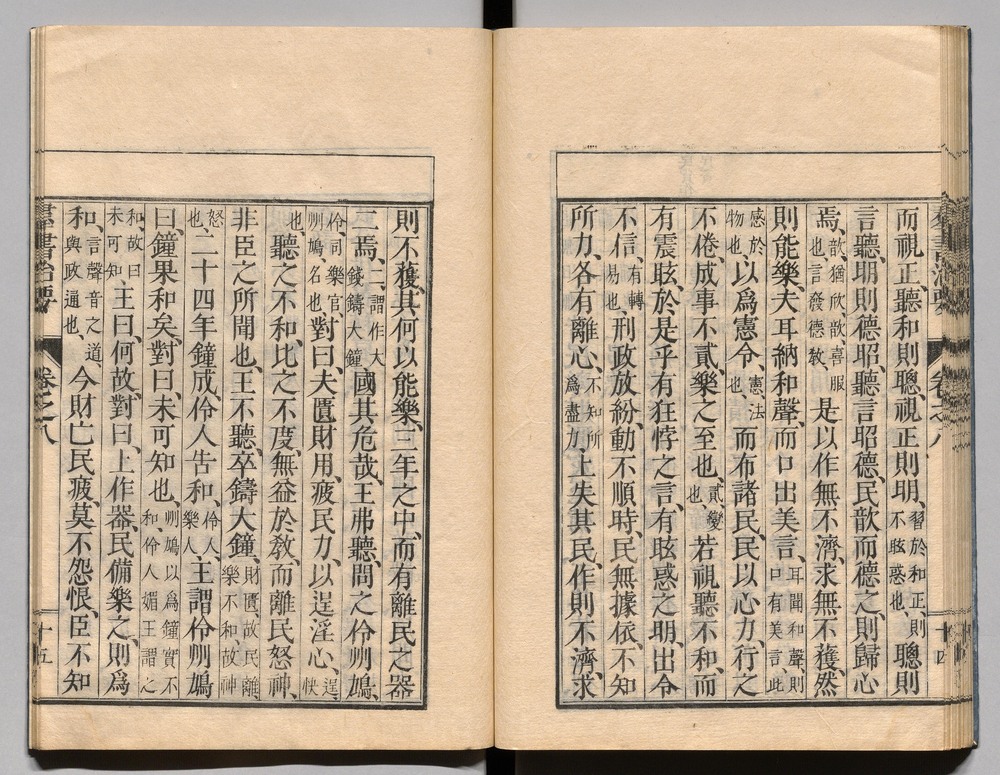 而視正、聽和則聰、視正則明、習於和正、則不眩惑也、聰則
言聽、明則德昭、聽言昭德、民歆而德之、則歸心
焉、歆、猶欣、歆、喜服也、言發德教、是以作無不濟、求無不獲、然
則能樂、夫耳納和聲、而口出美言、耳聞和聲、則口有美言、此
感於物也、以爲憲令、憲、法也、而布諸民、民以心力、行之
不倦、成事不貳、樂之至也、貳、變也、若視聽不和、而
有震眩、於是乎有狂悖之言、有眩惑之明、出令
不信、有轉易也、刑政放紛、動不順時、民無據依、不知
所力、各有離心、不知所爲盡力、上失其民、作則不濟、求
卷之八
十四
則不獲、其何以能樂、三年之中、而有離民之器
二焉、二、謂作大錢鑄大鐘、國其危哉、王弗聽、問之伶州鳩、
伶、司樂官、州鳩、名也、對曰、夫匱財用、疲民力、以逞淫心、逞、快也、
聽之不和、比之不度、無益於教、而離民怒神、
非臣之所聞也、王不聽、卒鑄大鐘、財匱故民離、樂不和故神
怒也、二十四年鐘成、伶人告和、伶人、樂人、王謂伶州鳩
曰、鐘果和矣、對曰、未可知也、州鳩以爲鐘實不和、伶人媚王謂之
和、故曰未可知、王曰、何故、對曰、上作器、民備樂之、則爲
和、言聲音之道、與政通也、今財亡民疲、莫不怨恨、臣不知
羣書治要
卷之八
十五